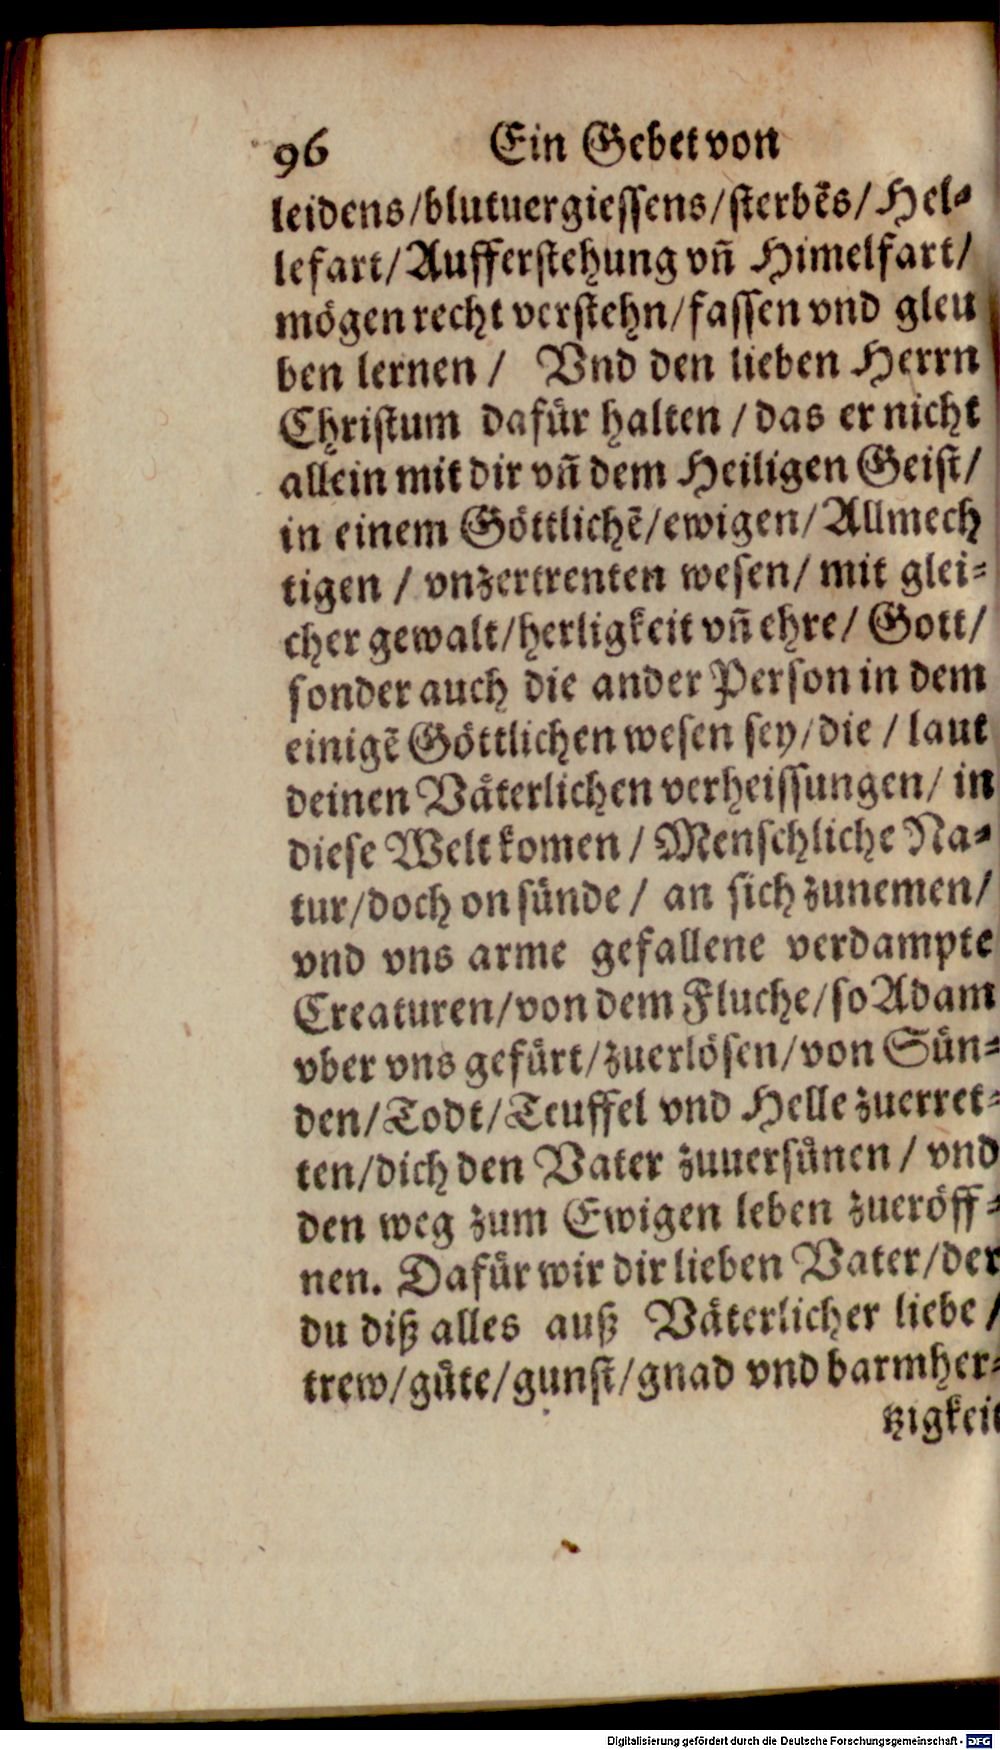 96 Ein Gebet von
leidens/blutuergiessens/sterbẽs/Hel-
lefart/Aufferstehung vñ Himelfart/
mögen recht verstehn/fassen vnd gleu
ben lernen / Vnd den lieben Herrn
Christum dafür halten / das er nicht
allein mit dir vñ dem Heiligen Geist/
in einem Göttlichẽ/ewigen/Allmech
tigen / vnzertrenten wesen/ mit glei-
cher gewalt/herligkeit vñ ehre/ Gott/
sonder auch die ander Person in dem
einigẽ Göttlichen wesen sey/die / laut
deinen Väterlichen verheissungen/ in
diese Welt komen / Menschliche Na-
tur/doch on sünde / an sich zunemen/
vnd vns arme gefallene verdampte
Creaturen/von dem Fluche/so Adam
vber vns gefürt/zuerlösen/von Sün-
den/Todt/Teuffel vnd Helle zuerret-
ten/dich den Vater zuuersünen / vnd
den weg zum Ewigen leben zueröff-
nen. Dafür wir dir lieben Vater/der
du diß alles auß Väterlicher liebe /
trew/güte/gunst/gnad vnd barmher-
tzigkeit
Digitalisierung gefördert durch die Deutsche Forschungsgemeinschaft - DFG